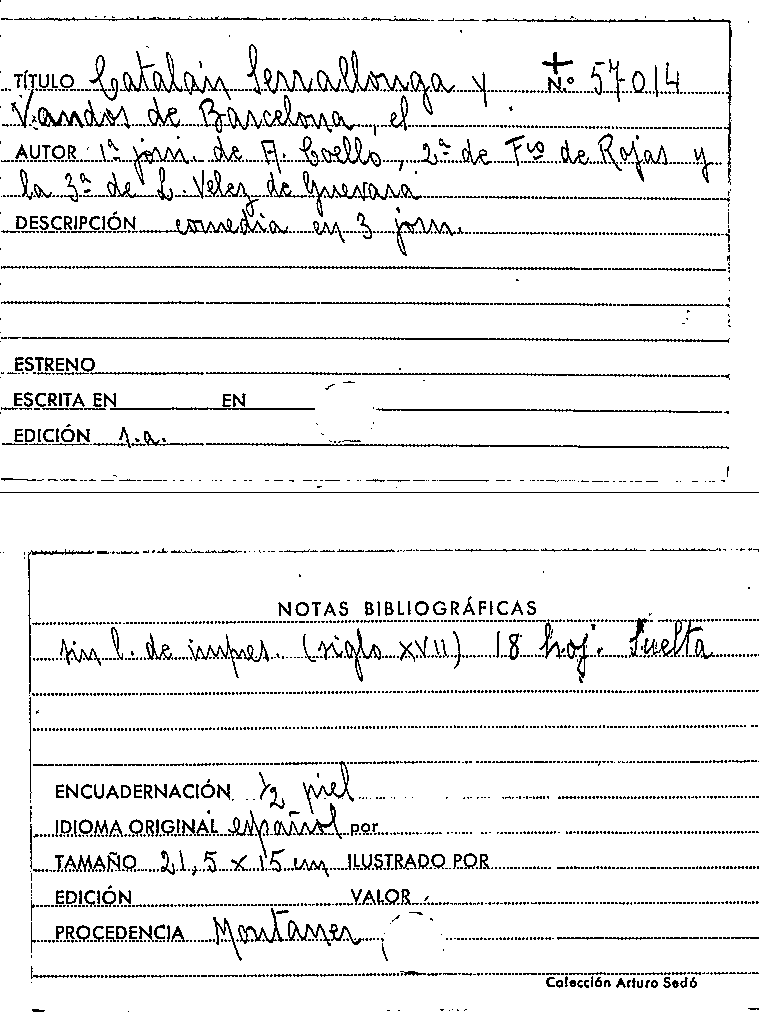 TÍTULO Catalán Serrallonga y + N.º 57014
Vandos de Barcelona, el
AUTOR 1ª jorn. de A. Coello, 2ª de Fco de Rojas y
la 3ª de L. Velez de Guevara
DESCRIPCIÓN comedia en 3 jorn.
ESTRENO
ESCRITA EN EN
EDICIÓN s.a.
NOTAS BIBLIOGRÁFICAS
sin l. de impres. (siglo XVII) 18 hoj. Suelta
ENCUADERNACIÓN 1/2 piel
IDIOMA ORIGINAL español por
TAMAÑO 21,5 x 15 cm ILUSTRADO POR
EDICIÓN VALOR
PROCEDENCIA Montaner
Colección Arturo Sedó